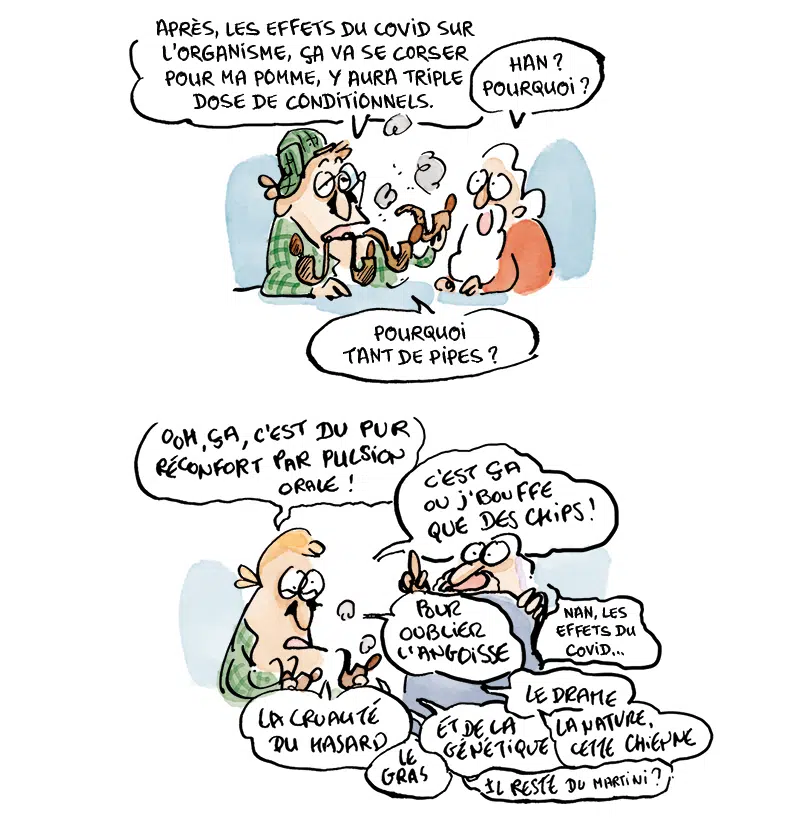 APRÈS, LES EFFETS DU COVID SUR
L'ORGANISME, ÇA VA SE CORSER
POUR MA POMME, Y AURA TRIPLE
DOSE DE CONDITIONNELS.
HAN ?
POURQUOI ?
POURQUOI
TANT DE PIPES ?
OOH, ÇA, C'EST DU PUR
RÉCONFORT PAR PULSION
ORALE !
C'EST ÇA
OU J'BOUFFE
QUE DES CHIPS !
POUR
OUBLIER
L'ANGOISSE
NAN, LES
EFFETS DU
COVID...
LE DRAME
LA CRUAUTÉ
DU HASARD
ET DE LA
GÉNÉTIQUE
LA NATURE,
CETTE CHIENNE
LE
GRAS
IL RESTE DU MARTINI ?